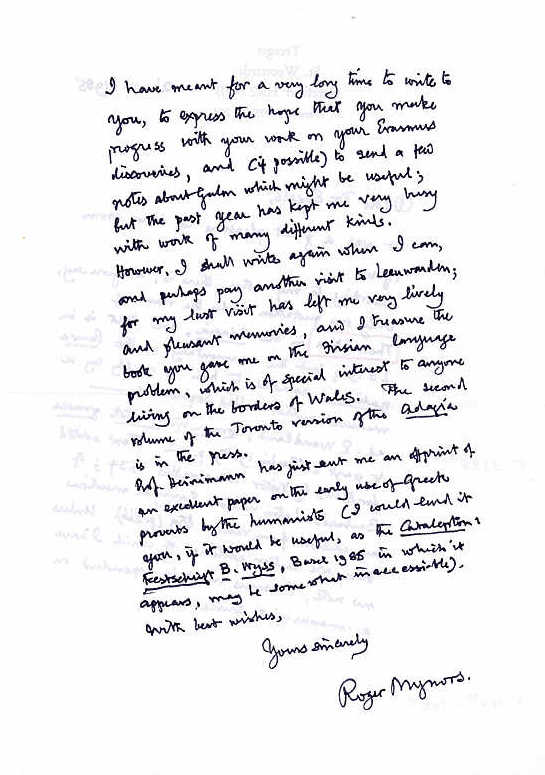 I have meant for a very long time to write to
you, to express the hope that you make
progress with your work on your Erasmus
discoveries, and (if possible) to send a few
notes about Gulm which might be useful;
but the past year has kept me very busy
with work of many different kinds.
However, I shall write again when I can,
and perhaps pay another visit to Leeuwarden;
for my last visit has left me very lively
and pleasant memories, and I treasure the
book you gave me on the Frisian language
problem, which is of special interest to anyone
living on the borders of Wales. The second
volume of the Toronto version of the Adagia
is in the press.
Prof. Heinimann has just sent me an offprint of
an excellent paper on the early use of Greek
proverbs by the humanists (I could lend it
you, if it would be useful, as the Catalepton:
Festschrift B. Wyss, Basel 1985 in which it
appears, may be somewhat inaccessible).
With best wishes,
Yours sincerely
Roger Mynors.